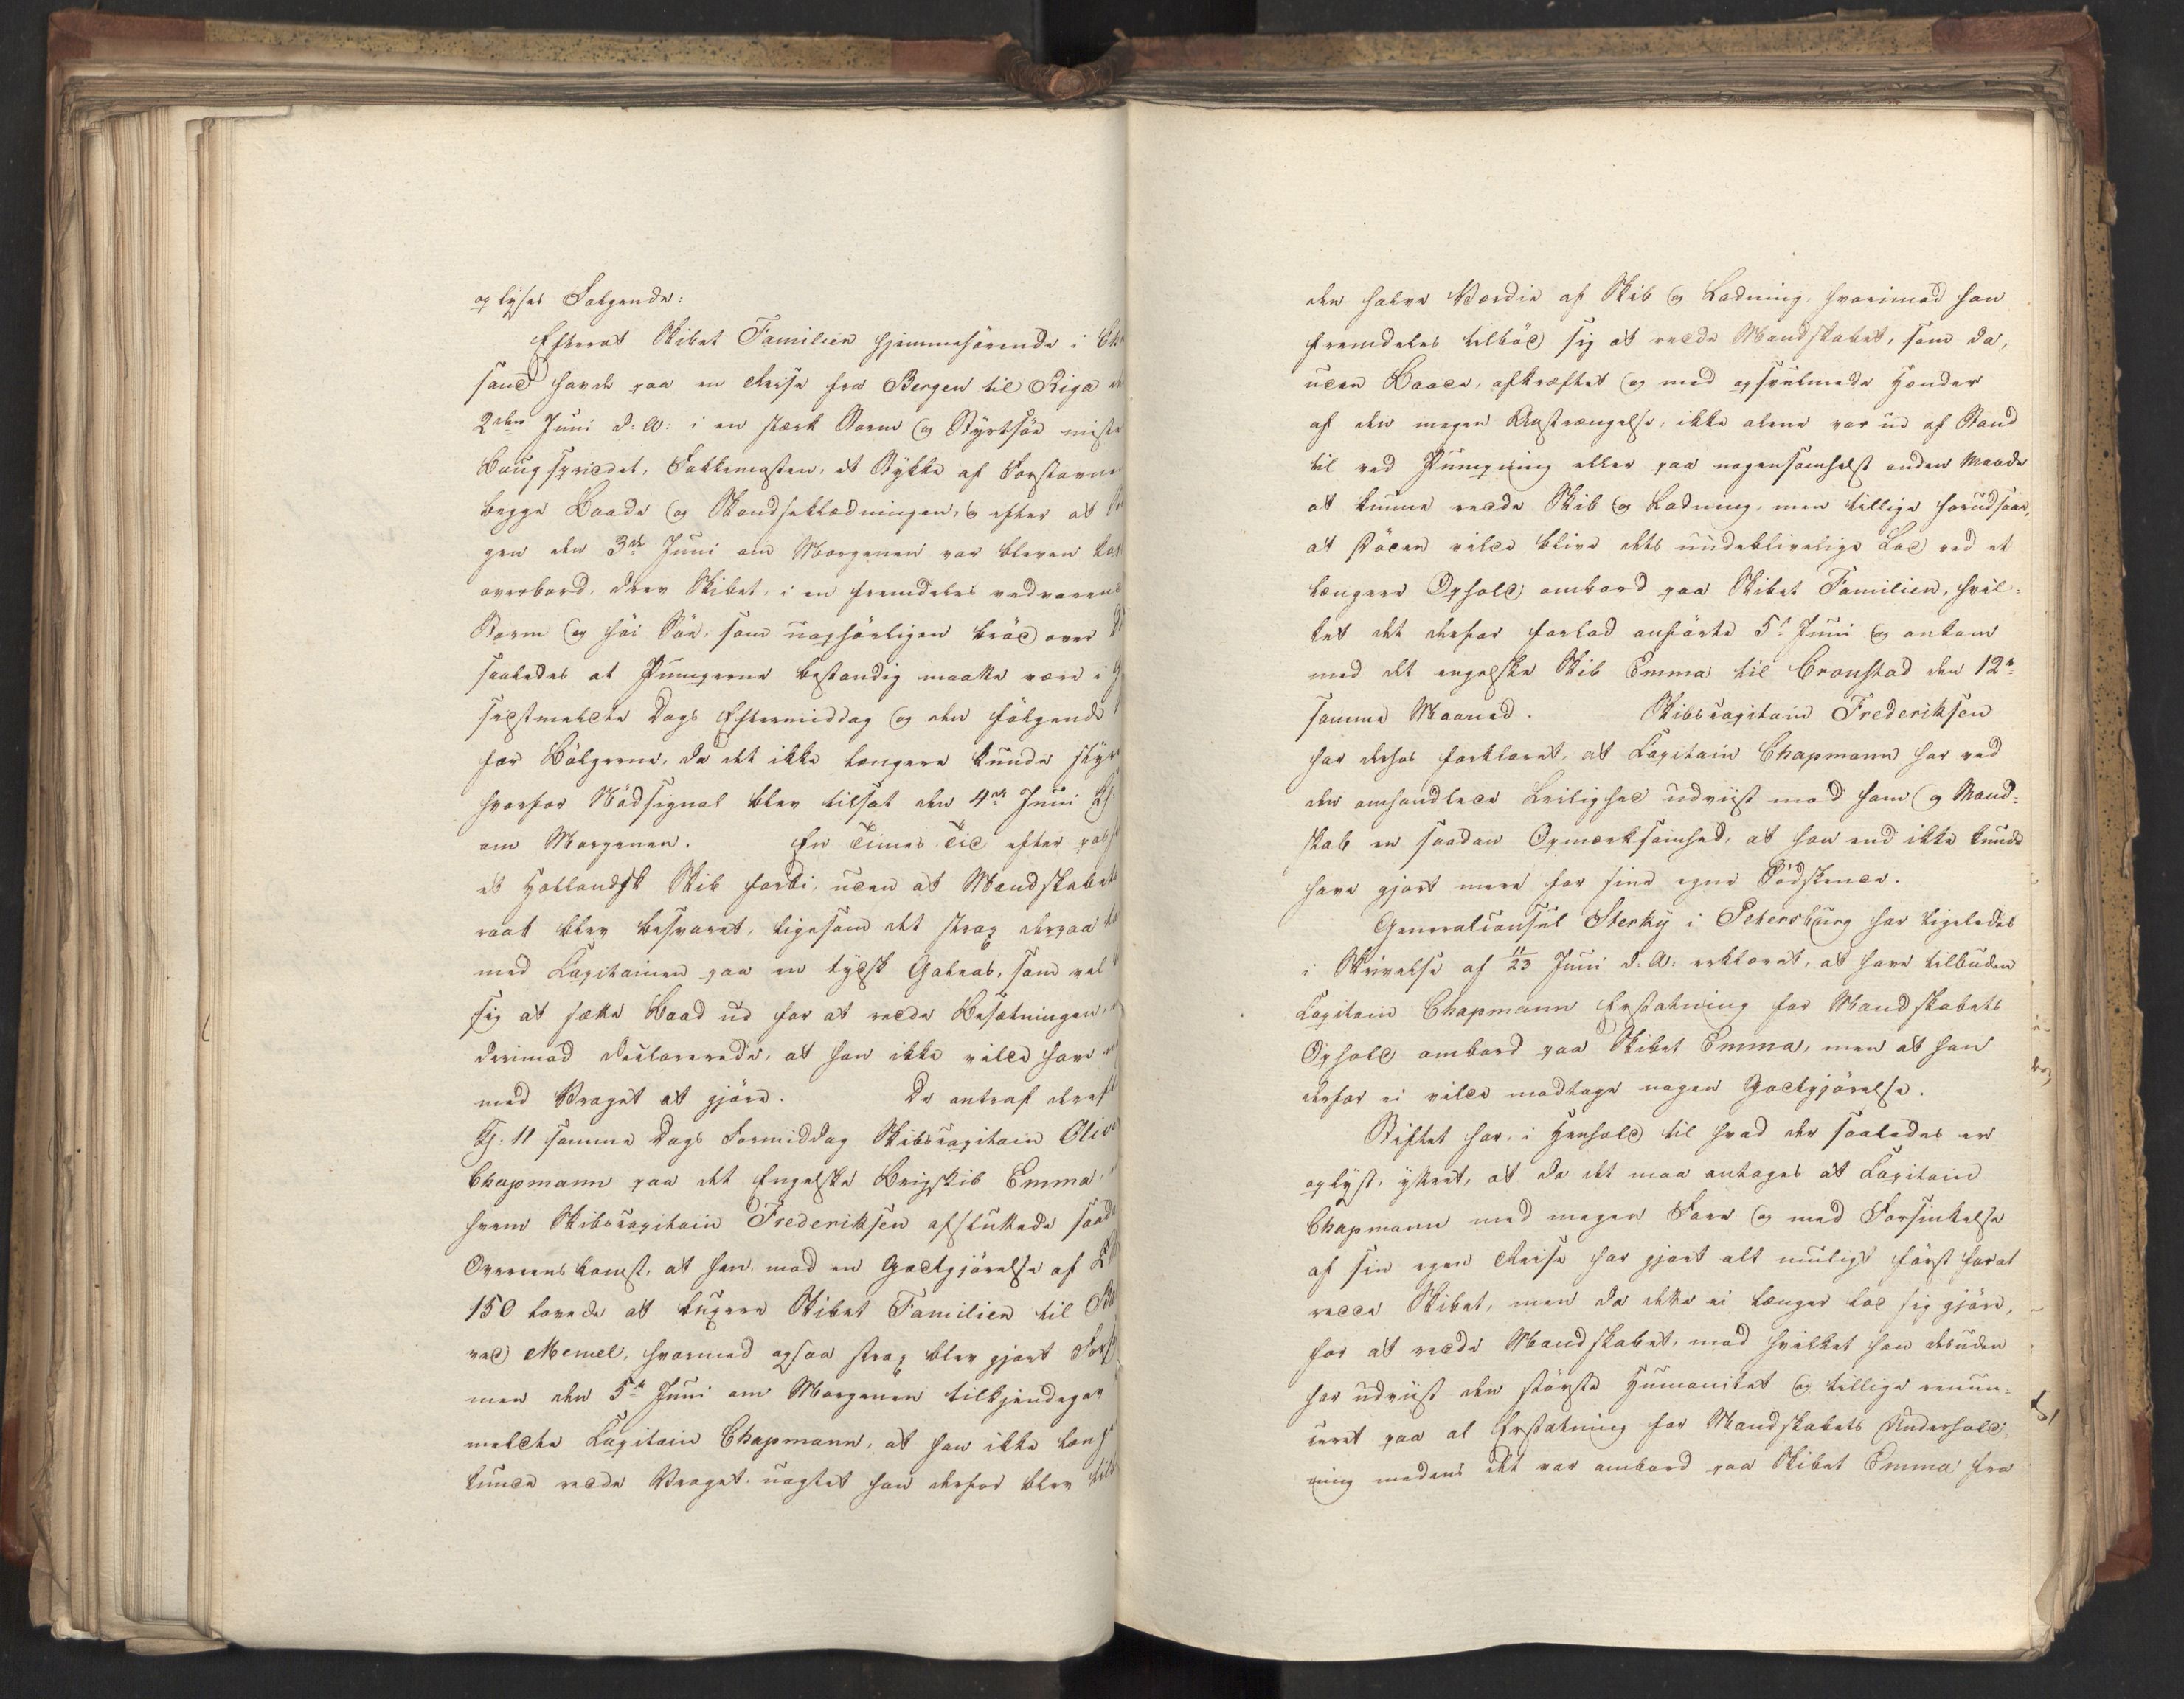 oplyses Følgende:
Efterat Skibet Familien hjemmehörende i
sand havde paa en Reise fra Bergen til Riga
2den Juni d. A: i en stærk Storm og Styrtsöe miste
Bougspridet, Fokkemasten, et Stykke af Forstavne
begge Baade og Skandseklædningen, og efter at
gen den 3de Juni om Morgenen var bleven kas
overbord, drev Skibet, i en fremdeles vedvarend
Storm og höi Söe, som uophörligen bröd over
saaledes at Pumperne bestandig maatte være i
sidstmeldte Dags Eftermiddag og den fölgende
for Bölgerne, da det ikke længere kunde styr
hvorfor Nödsignal blev tilsat den 4de Juni Kl.
om Morgenen. En Times Tid efter
et Hollandsk Skib forbi, uden at Mandskabets
raab blev besvaret, ligesom det strax derpaa
med Capitainen paa en tydsk Galeas, som vel
sig at sætte Baad ud for at redde Besætningen,
derimod declarerede, at han ikke vilde have
med Vraget at gjöre. Da antraf
Kl: 11 samme Dags Formiddag Skibscapitain
Chapmann paa det Engelske Brigskib Emma,
hvem Skibscapitain Frederiksen afsluttede saad
Overenskomst, at han mod en Godtgjörelse af
150 lovede at bugsere Skibet Familien til
ved Memel, hvormed ogsaa strax blev gjort
men den 5te Juni om Morgenen tilkjendegav
meldte Capitain Chapmann, at han ikke læng
kunde redde Vraget, uagtet han derfor blev
den halve Værdie af Skib og Ladning, hvorimod han
fremdeles tilböd sig at redde Mandskabet, som da,
uden Baade, afkræftet og med opsvulmede Hænder
af den megen Anstrængelse, ikke alene var ud af Stand
til ved Pumpning eller paa nogensomhelst anden Maade
at kunne redde Skib og Ladning, men tillige forudsaae,
at Döden vilde blive dets uudeblivelige Lod ved et
længere Ophold ombord paa Skibet Familien, hvil-
ket det derfor forlod anförte 5t Juni og ankom
med det engelske Skib Emma til Cronstad den 12te
samme Maaned. Skibscapitain Frederiksen
har derhos forklaret, at Capitain Chapmann har ved
den omhandlede Leilighed udviist mod ham og Mand-
skab en saadan Opmærksomhed, at han end ikke kunde
have gjort mere for sine egne Södskende.
Generalconsul Sterky i Petersburg har ligeledes
i Skrivelse af 11/23 Juni d. A: erklæret, at have tilbuden
Capitain Chapmann Erstatning for Mandskabets
Ophold ombord paa Skibet Emma, men at han
derfor ei vilde modtage nogen Godtgjörelse.
Stiftet har, i Henhold til hvad der saaledes er
oplyst, yttret, at da det maa antages at Capitain
Chapmann med megen Fare og med Forsinkelse
af sin egen Reise har gjort alt muligt först forat
redde Skibet, men da dette ei længer lod sig gjöre,
for at redde Mandskabet, mod hvilket han desuden
har udviist den störste Humanitet og tillige renun-
ceret paa al Erstatning for Mandskabets Underhold-
ning medens det var ombord paa Skibet Emma fra